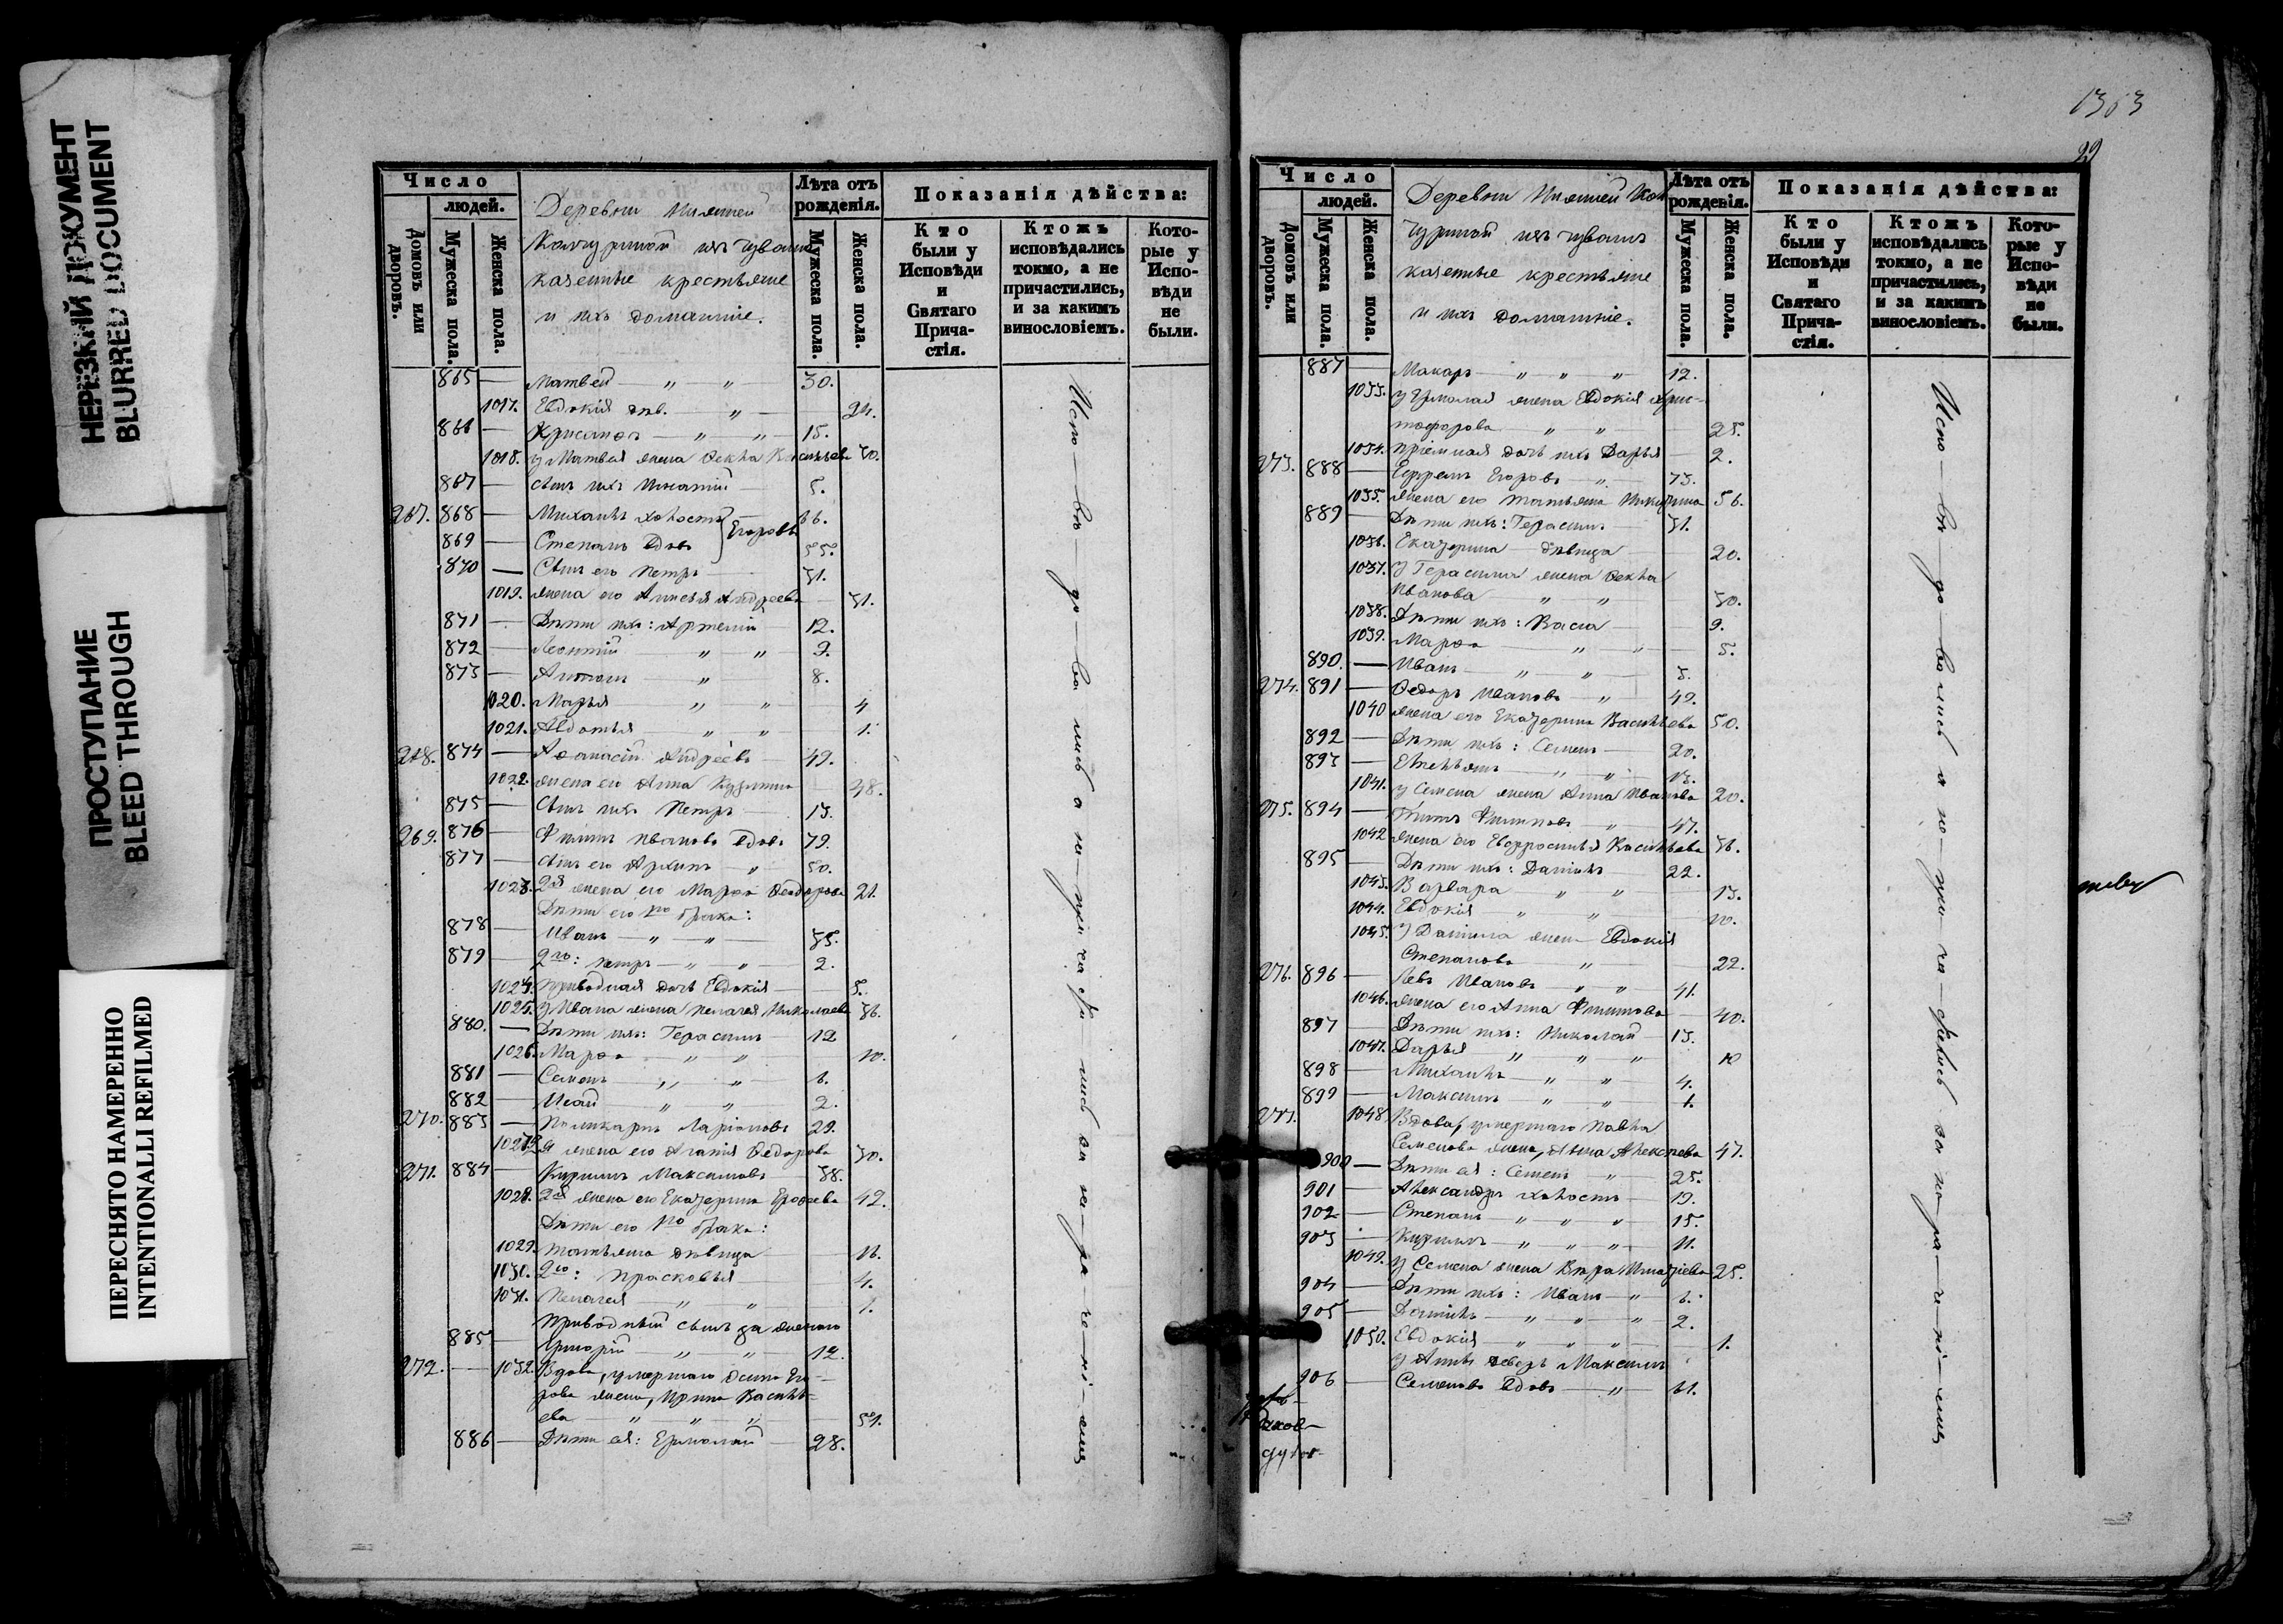 НЕРЕЗКИЙ ДОКУМЕНТ
BLURRED DOCUMENT
ПРОСТУПАНИЕ
BLEED THROUGH
ПЕРЕСНЯТО НАМЕРЕННО
INTENTIONALLI REFILMED
Число
людей.
Домовъ или дворовъ.
Мужеска пола.
Женска пола.
Деревни Нижней
изъ чувашъ
казенные крестьяне
и ихъ домашніе.
Лѣта отъ рожденія.
Мужеска пола.
Женска пола.
Показанія дѣйства:
Кто были у Исповѣди и Святаго Причастія.
Ктожъ исповѣдались токмо, а не причастились, и за какимъ винословіемъ.
Которые у Исповѣди не были.
865 — Матвей — „ — „ — 30.
1017. Евдокія дѣв. „ — 24.
866 — Хрисанѳъ — „ — „ — 15.
1018. у Матвея жена Ѳекла Васильева 30.
867 — сынъ ихъ Игнатій — 5.
267. 868 — Михаилъ холостъ } Егоровы 66.
869 — Степанъ вдовъ 55.
870 — Сынъ его Петръ — 31.
1019. жена его Анисья Андреева — 31.
871 — Дѣти ихъ: Артемій — 12.
872 — Леонтій „ — „ — 9.
873 — Антонъ — „ — 8.
1020. Марья „ „ — 4
1021. Авдотья „ „ — 1.
268. 874 — Аѳанасій Андреевъ — 49.
1022. жена его Анна Кузьмина 48.
875 — Сынъ ихъ Петръ — 13.
269. 876 — Филипъ Ивановъ вдовъ 79.
877 — сынъ его Архипъ — „ 50.
1023. 2я жена его Марѳа Ѳеодорова 21.
Дѣти его 1го брака:
878 — Иванъ — „ — „ — 35.
879 — 2го: Петръ — „ „ — 2.
1024. приводная дочь Евдокія — 5.
1025. у Ивана жена Пелагея Николаева 36.
880. — Дѣти ихъ: Герасимъ — 12
1026. Марѳа „ „ — 10.
881 — Семенъ „ — „ — 6.
882 — Исай „ — „ — 2.
270. 883 — Поликарпъ Ларіоновъ 29.
1027. жена его Агапія Ѳедорова 30.
271. 884 — Кирилъ Максимовъ — 38.
1028. 2я жена его Екатерина Ероѳеева 42.
Дѣти его 1го брака:
1029. Татьяна дѣвица — 16.
1030. 2го: Прасковья — 4.
1031. Пелагея — „ „ — 1.
приводный сынъ за женою
885 — Григорій — „ — „ — 12.
272. — 1032. Вдова, умершаго Осипа Его-
рова жена, Ирина Василь-
ева — „ — „ — „ — 51.
886 — Дѣти ея: Ермолай — 28.
Испо — вѣ — до — ва лись а не — при ча сти — лись за не — ра — че — ні — емъ
1363
29
Число
людей.
Домовъ или дворовъ.
Мужеска пола.
Женска пола.
Деревни Нижней
изъ чувашъ
казенные крестьяне
и ихъ домашніе.
Лѣта отъ рожденія.
Мужеска пола.
Женска пола.
Показанія дѣйства:
Кто были у Исповѣди и Святаго Причастія.
Ктожъ исповѣдались токмо, а не причастились, и за какимъ винословіемъ.
Которые у Исповѣди не были.
887 — Макаръ — „ „ „ 12.
1033. у Ермолая жена Евдокія Хрис-
тофорова „ „ 25.
1034. пріемная дочь ихъ Дарья — 2.
273. 888 — Ефремъ Егоровъ — „ — 73.
1035. жена его Татьяна Никифорова 56.
889 — Дѣти ихъ: Герасимъ 31.
1036. Екатерина — дѣвица 20.
1037. у Герасима жена Ѳекла
Иванова „ „ 30.
1038. Дѣти ихъ: Васса 9.
1039. Марѳа „ „ 5.
890. — Иванъ — „ „ 3.
274. 891 — Ѳедоръ Ивановъ — „ 49.
1040 жена его Екатерина Васильева 50.
892 — Дѣти ихъ: Семенъ — 20.
893 — Емельянъ — „ „ 13.
1041. у Семена жена Анна Иванова 20.
275. 894 — Титъ Филиповъ „ — 47.
1042 жена его Евфросинья Васильева 36.
895 — Дѣти ихъ: Данилъ 22.
1043. Варвара „ „ 13.
1044. Евдокія „ „ 10.
1045. у Данила жена Евдокія
Степанова „ 22.
276. 896 — Левъ Ивановъ „ „ 41.
1046. жена его Анна Филипова — 40.
897 — Дѣти ихъ: Николай 13.
1047. Дарья „ „ „ 10
898 — Михаилъ — „ „ 4.
899 — Максимъ „ „ 1.
277. 1048. Вдова, умершаго Павла
Семенова жена, Анна Алексѣева 47.
900 — Дѣти ея: Семенъ „ — 25.
901 — Александръ холостъ — 19.
902 — Степанъ — „ — „ — „ 15.
903 — Кирилъ — „ „ „ 11.
1049. у Семена жена Вѣра Игнатіева 25.
904 — Дѣти ихъ: Иванъ — „ — 6.
905 — Данилъ — „ „ „ 2.
1050. Евдокія — „ „ „ 1.
у Анны деверь Максимъ
906 — Семеновъ вдовъ — „ — 61.
Испо — вѣ до вались а не — при ча — стились за не — ра — че — ні — емъ